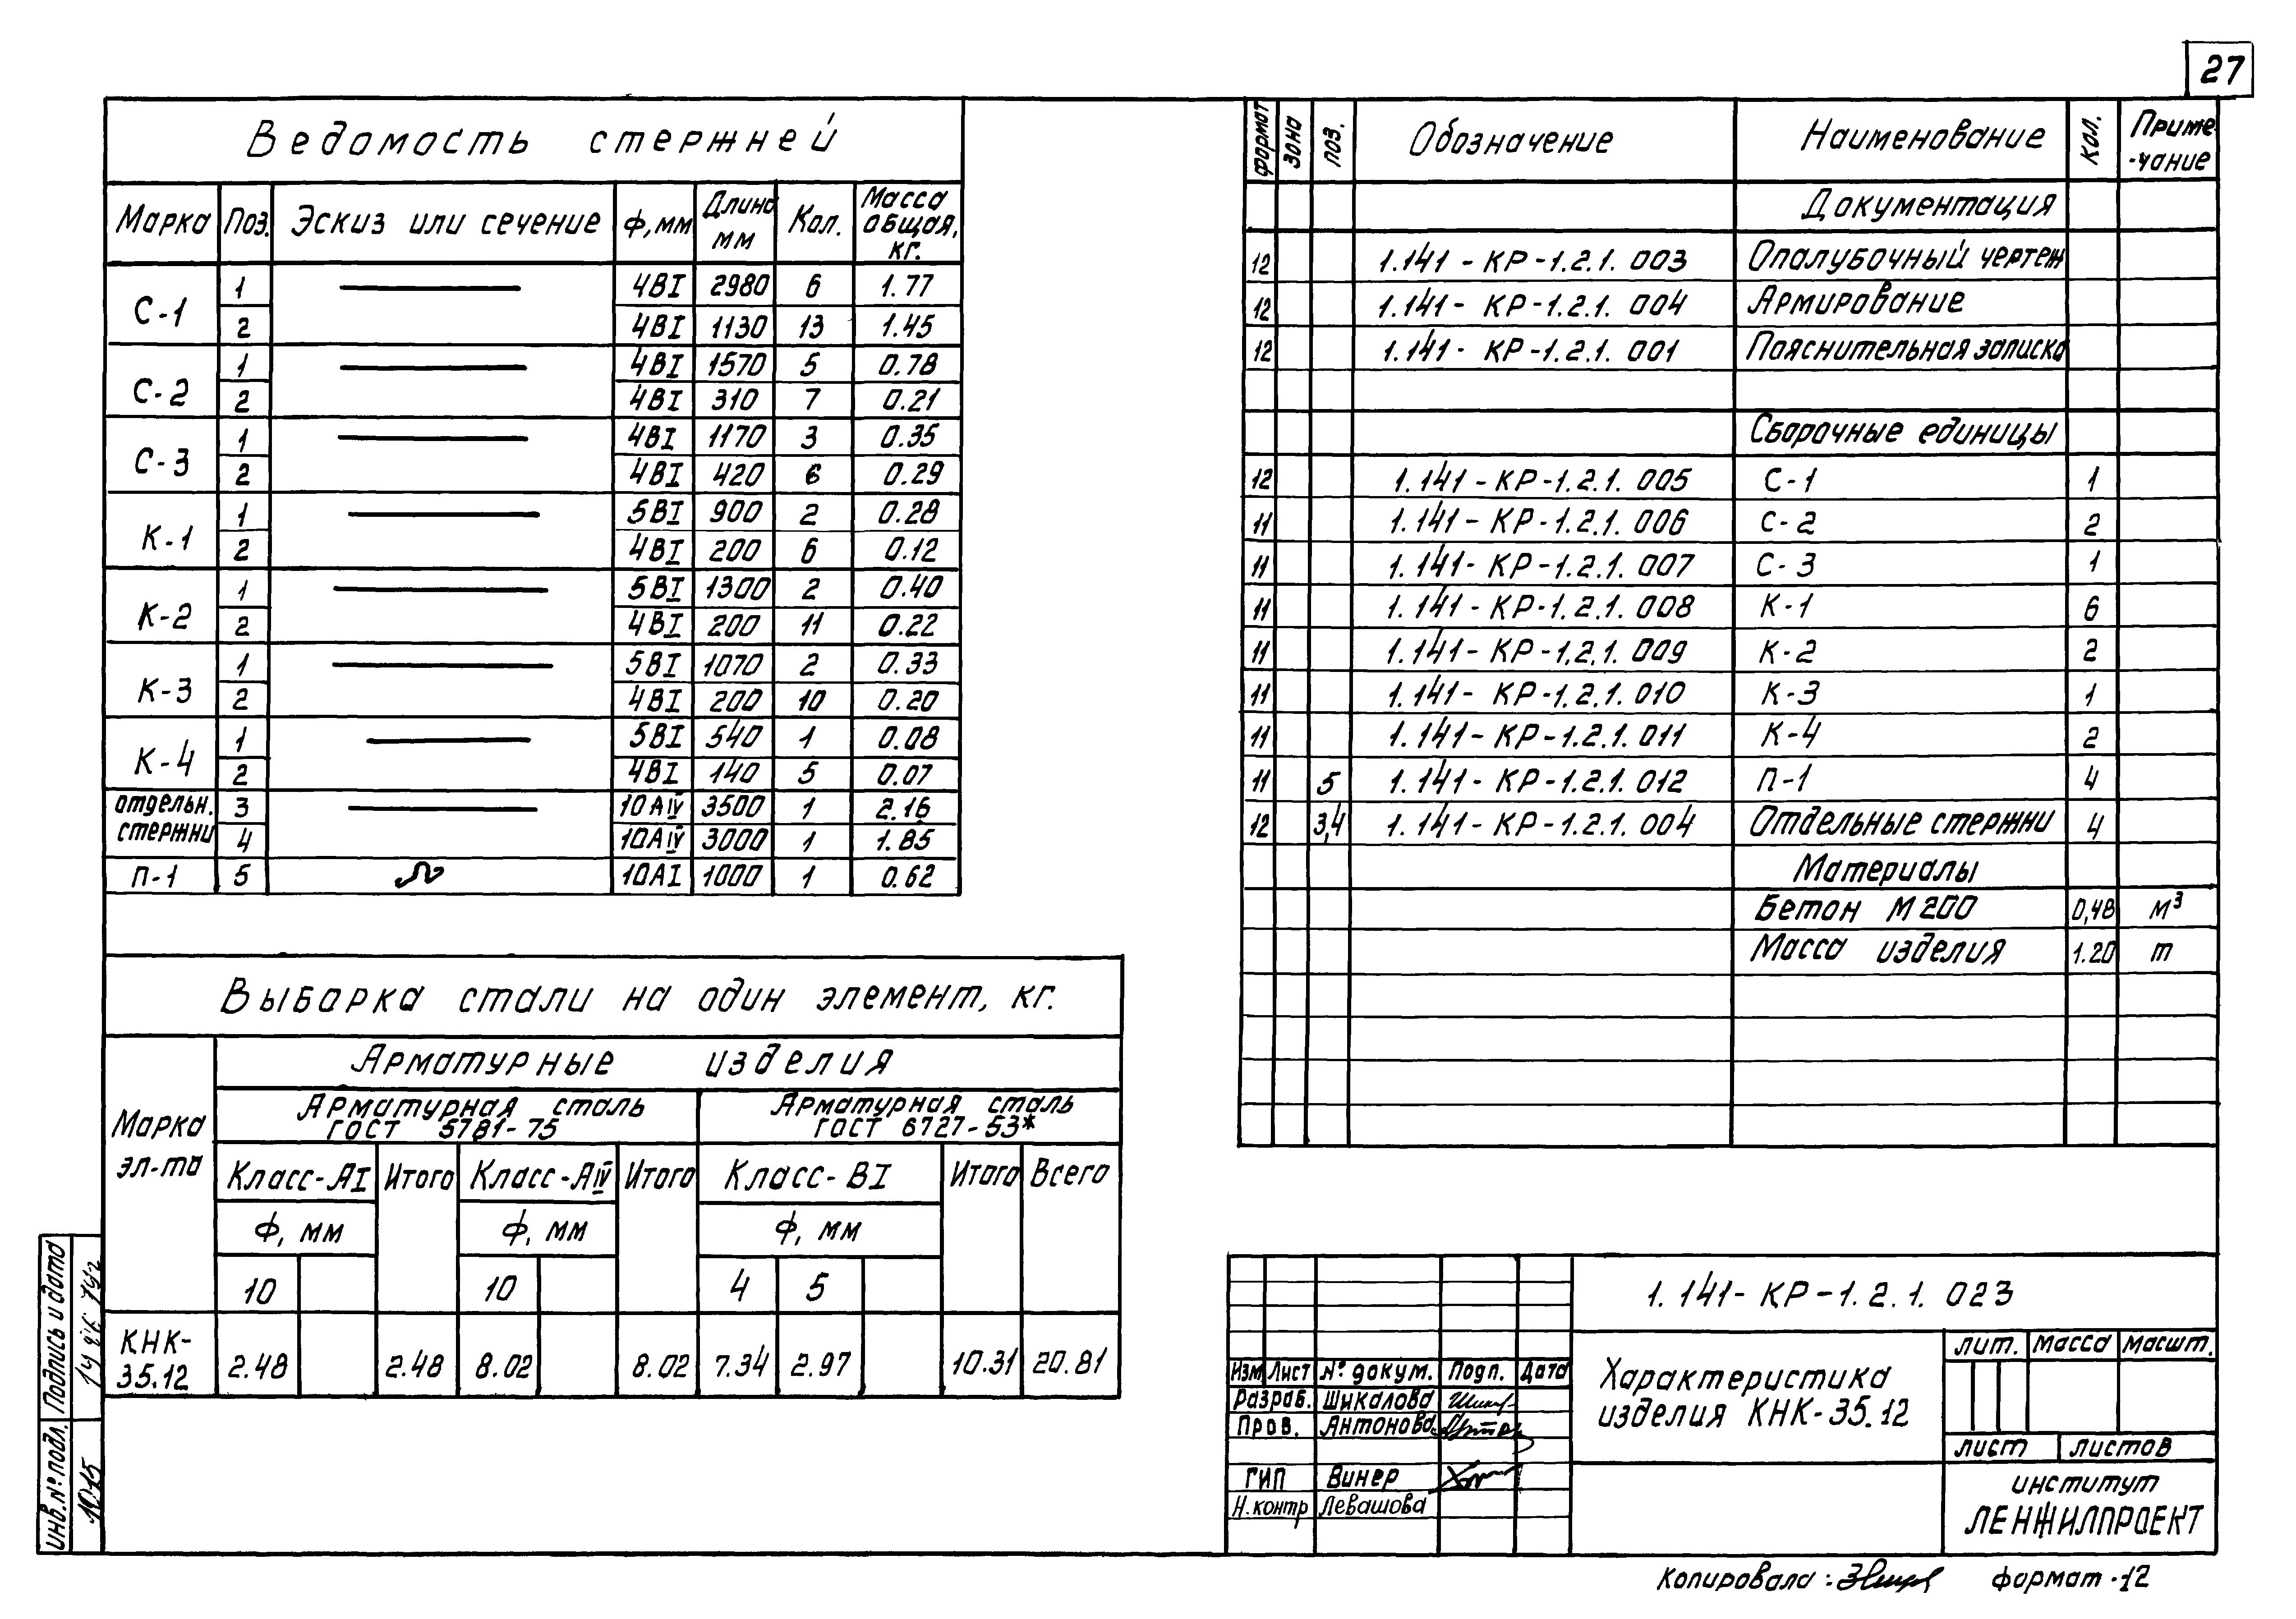 27
Ведомость стержней
Марка Поз. Эскиз или сечение ф,мм Длина мм Кол. Масса общая, кг.
С-1 1 4ВI 2980 6 1.77
2 4ВI 1130 13 1.45
С-2 1 4ВI 1570 5 0.78
2 4ВI 310 7 0.21
С-3 1 4ВI 1170 3 0.35
2 4ВI 420 6 0.29
К-1 1 5ВI 900 2 0.28
2 4ВI 200 6 0.12
К-2 1 5ВI 1300 2 0.40
2 4ВI 200 11 0.22
К-3 1 5ВI 1070 2 0.33
2 4ВI 200 10 0.20
К-4 1 5ВI 540 1 0.08
2 4ВI 140 5 0.07
отдельн. стержни 3 10АIV 3500 1 2.16
4 10АIV 3000 1 1.85
П-1 5 10АI 1000 1 0.62
Выборка стали на один элемент, кг.
Марка эл-та
Арматурные изделия
Арматурная сталь ГОСТ 5781-75
Арматурная сталь ГОСТ 6727-53*
Класс-АI Итого Класс-АIV Итого Класс-ВI Итого Всего
ф, мм ф, мм ф, мм
10 10 4 5
КНК-35.12 2.48 2.48 8.02 8.02 7.34 2.97 10.31 20.81
формат зона поз. Обозначение Наименование кол. Приме-чание
Документация
12 1.141-КР-1.2.1. 003 Опалубочный чертеж
12 1.141- КР-1.2.1. 004 Армирование
12 1.141- КР-1.2.1. 001 Пояснительная записка
Сборочные единицы
12 1.141-КР-1.2.1. 005 С-1 1
11 1.141-КР-1.2.1. 006 С-2 2
11 1.141- КР-1.2.1. 007 С-3 1
11 1.141- КР-1.2.1. 008 К-1 6
11 1.141- КР-1.2.1. 009 К-2 2
11 1.141- КР-1.2.1. 010 К-3 1
11 1.141- КР-1.2.1. 011 К-4 2
11 5 1.141- КР-1.2.1. 012 П-1 4
12 3,4 1.141-КР-1.2.1. 004 Отдельные стержни 4
Материалы
Бетон М 200 0,48 м³
Масса изделия 1.20 т
1.141-КР-1.2.1. 023
Характеристика
изделия КНК-35.12
лит. масса масшт.
лист листов
институт
ЛЕНЖИЛПРОЕКТ
Изм Лист № докум. Подп. Дата
Разраб. Шикалова
Пров. Антонова
ГИП Винер
Н.контр Левашова
Подпись и дата
инв.№ подл.
1015
Копировала:
формат-12